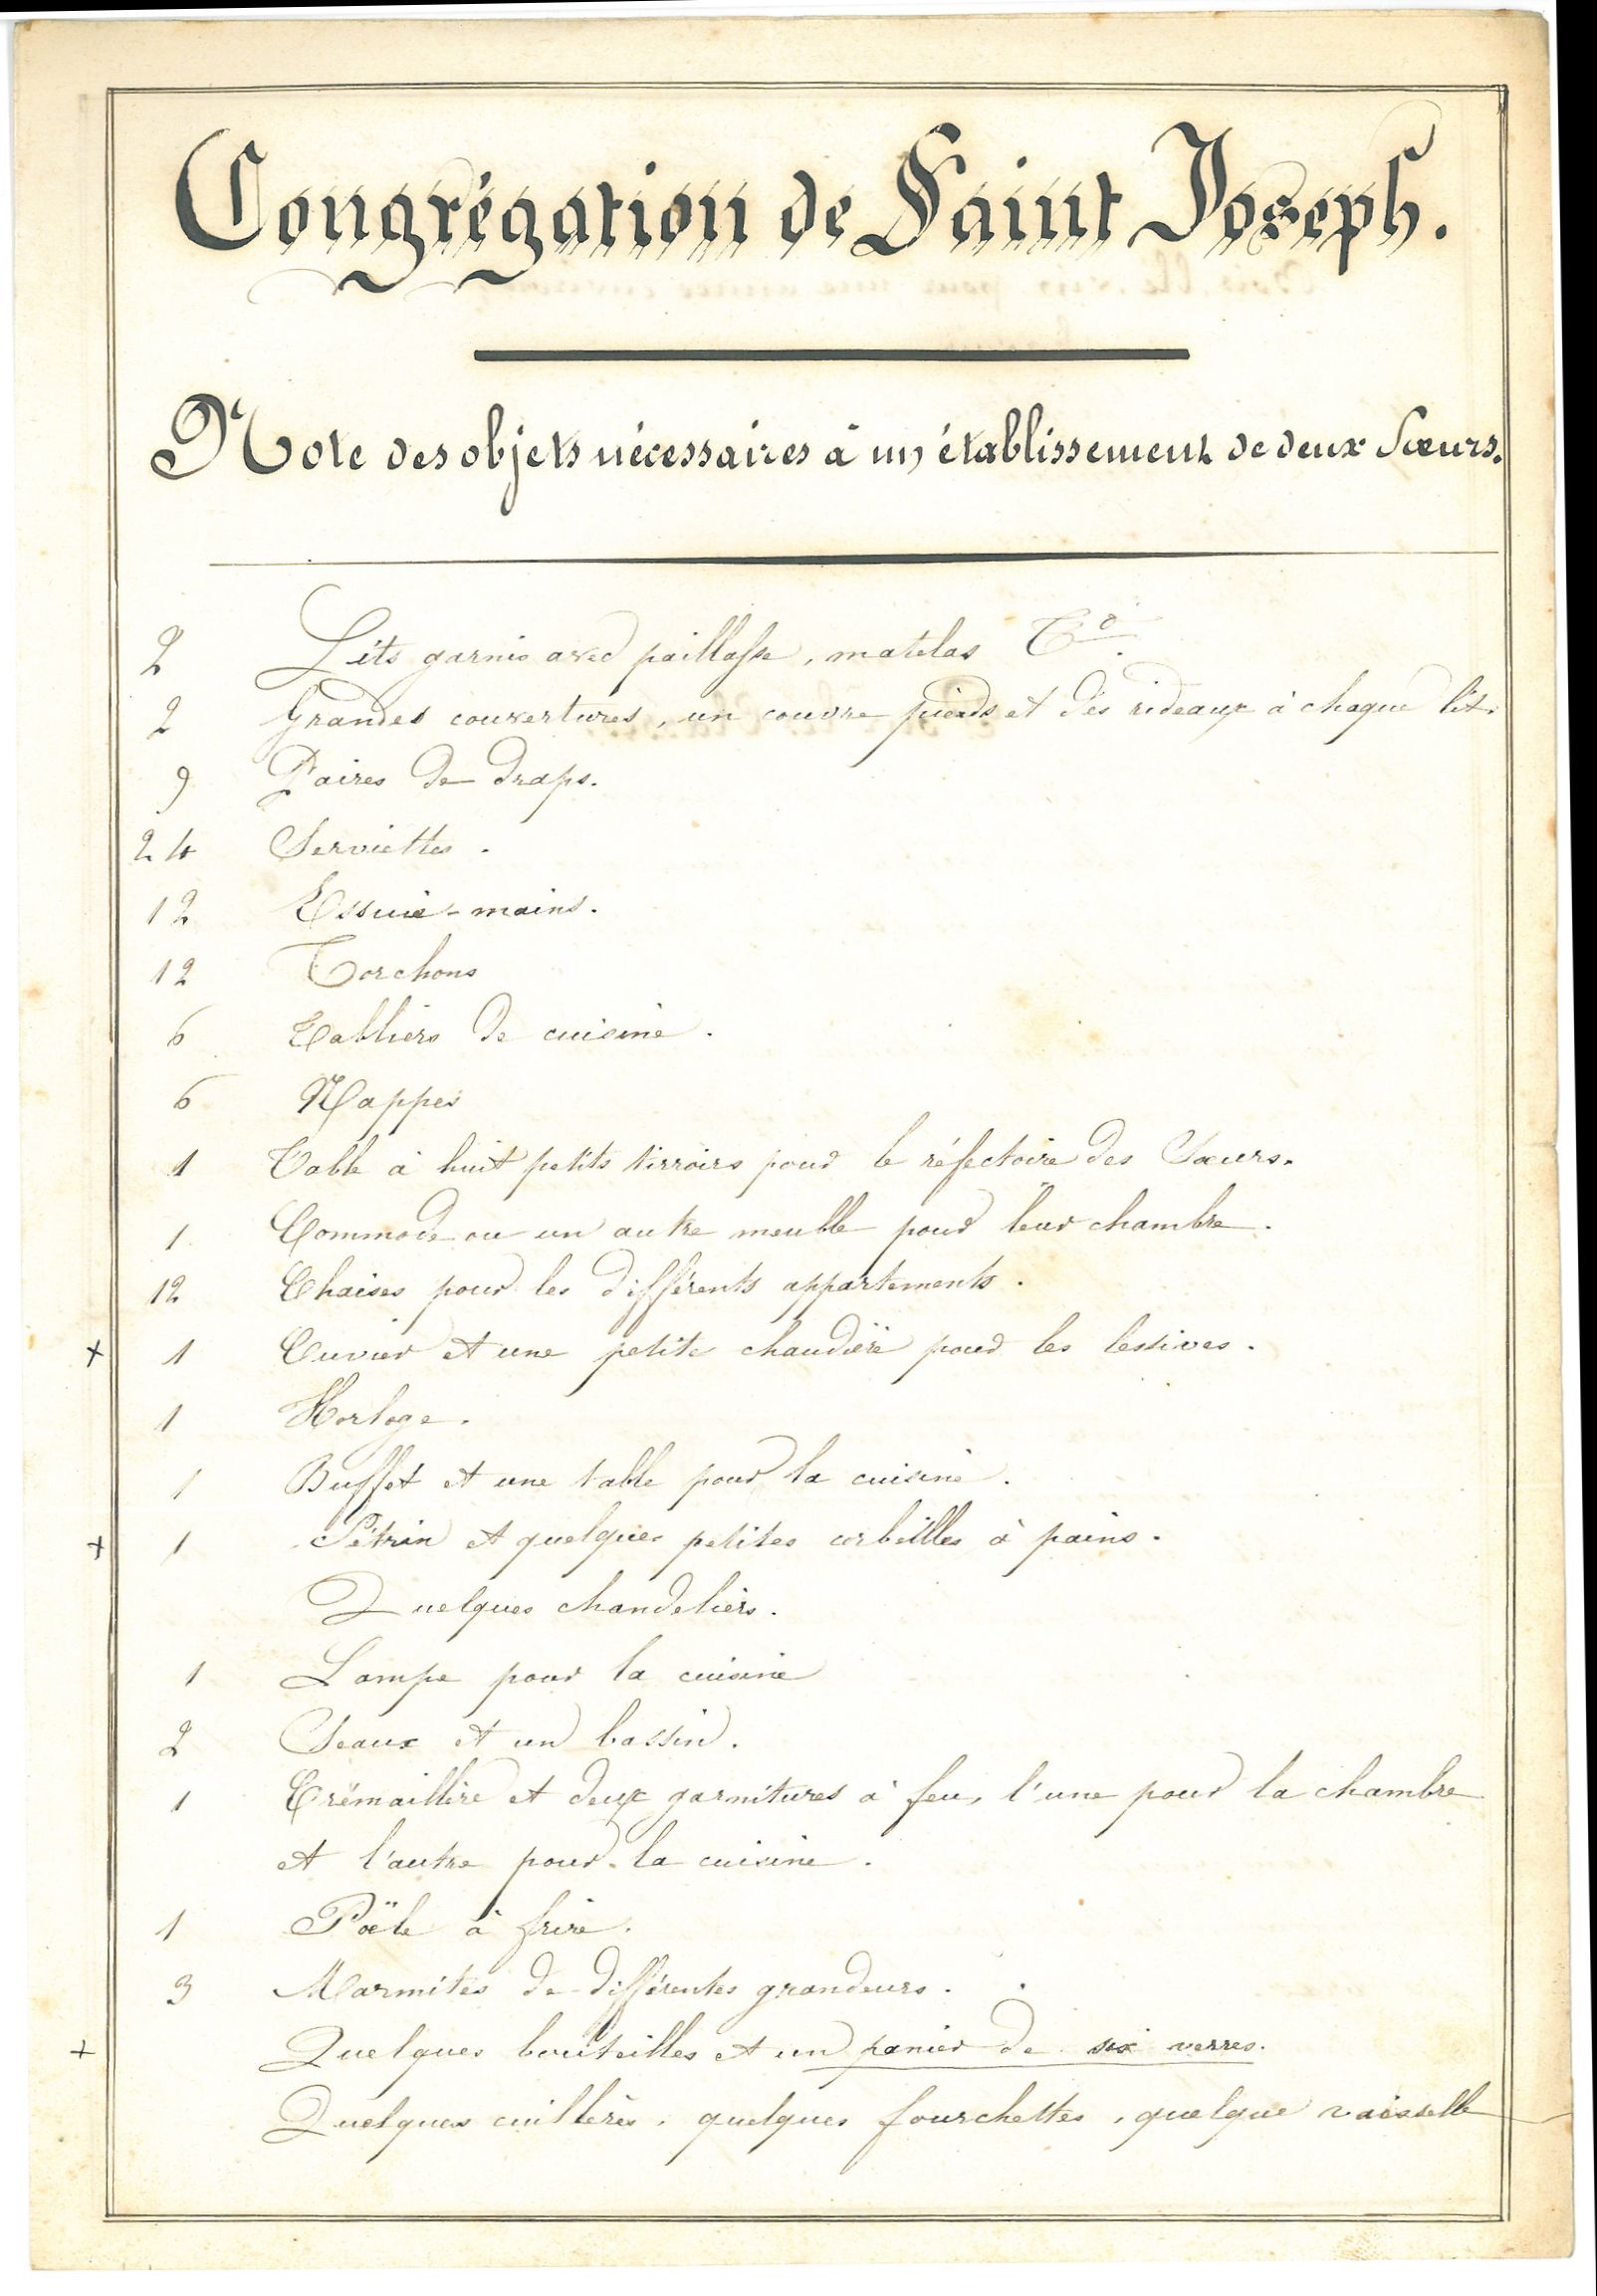 Congrégation de Saint Joseph.
Note des objets nécessaires à un établissement de deux Sœurs.
2 Lits garnis avec paillasse, matelas &a.
2 Grandes couvertures, un couvre pieds et des rideaux à chaque lit.
9 Paires de draps.
24 Serviettes.
12 Essuie-mains.
12 Torchons
6 Tabliers de cuisine.
6 Nappes
1 Table à huit petits tirroirs pour le réfectoire des Sœurs.
1 Commode ou un autre meuble pour leur chambre.
12 Chaises pour les différents appartements.
+ 1 Cuvier et une petite chaudière pour les lessives.
1 Horloge.
1 Buffet et une table pour la cuisine.
+ 1 Pétrin et quelques petites corbeilles à pains.
Quelques chandeliers.
1 Lampe pour la cuisine
2 Seaux et un bassin.
1 Crémaillère et deux garnitures à feu, l'une pour la chambre
et l'autre pour la cuisine.
1 Poële à frire.
3 Marmites de différentes grandeurs.
+ Quelques bouteilles et un panier de six verres.
Quelques cuillères, quelques fourchettes, quelque vaisselle